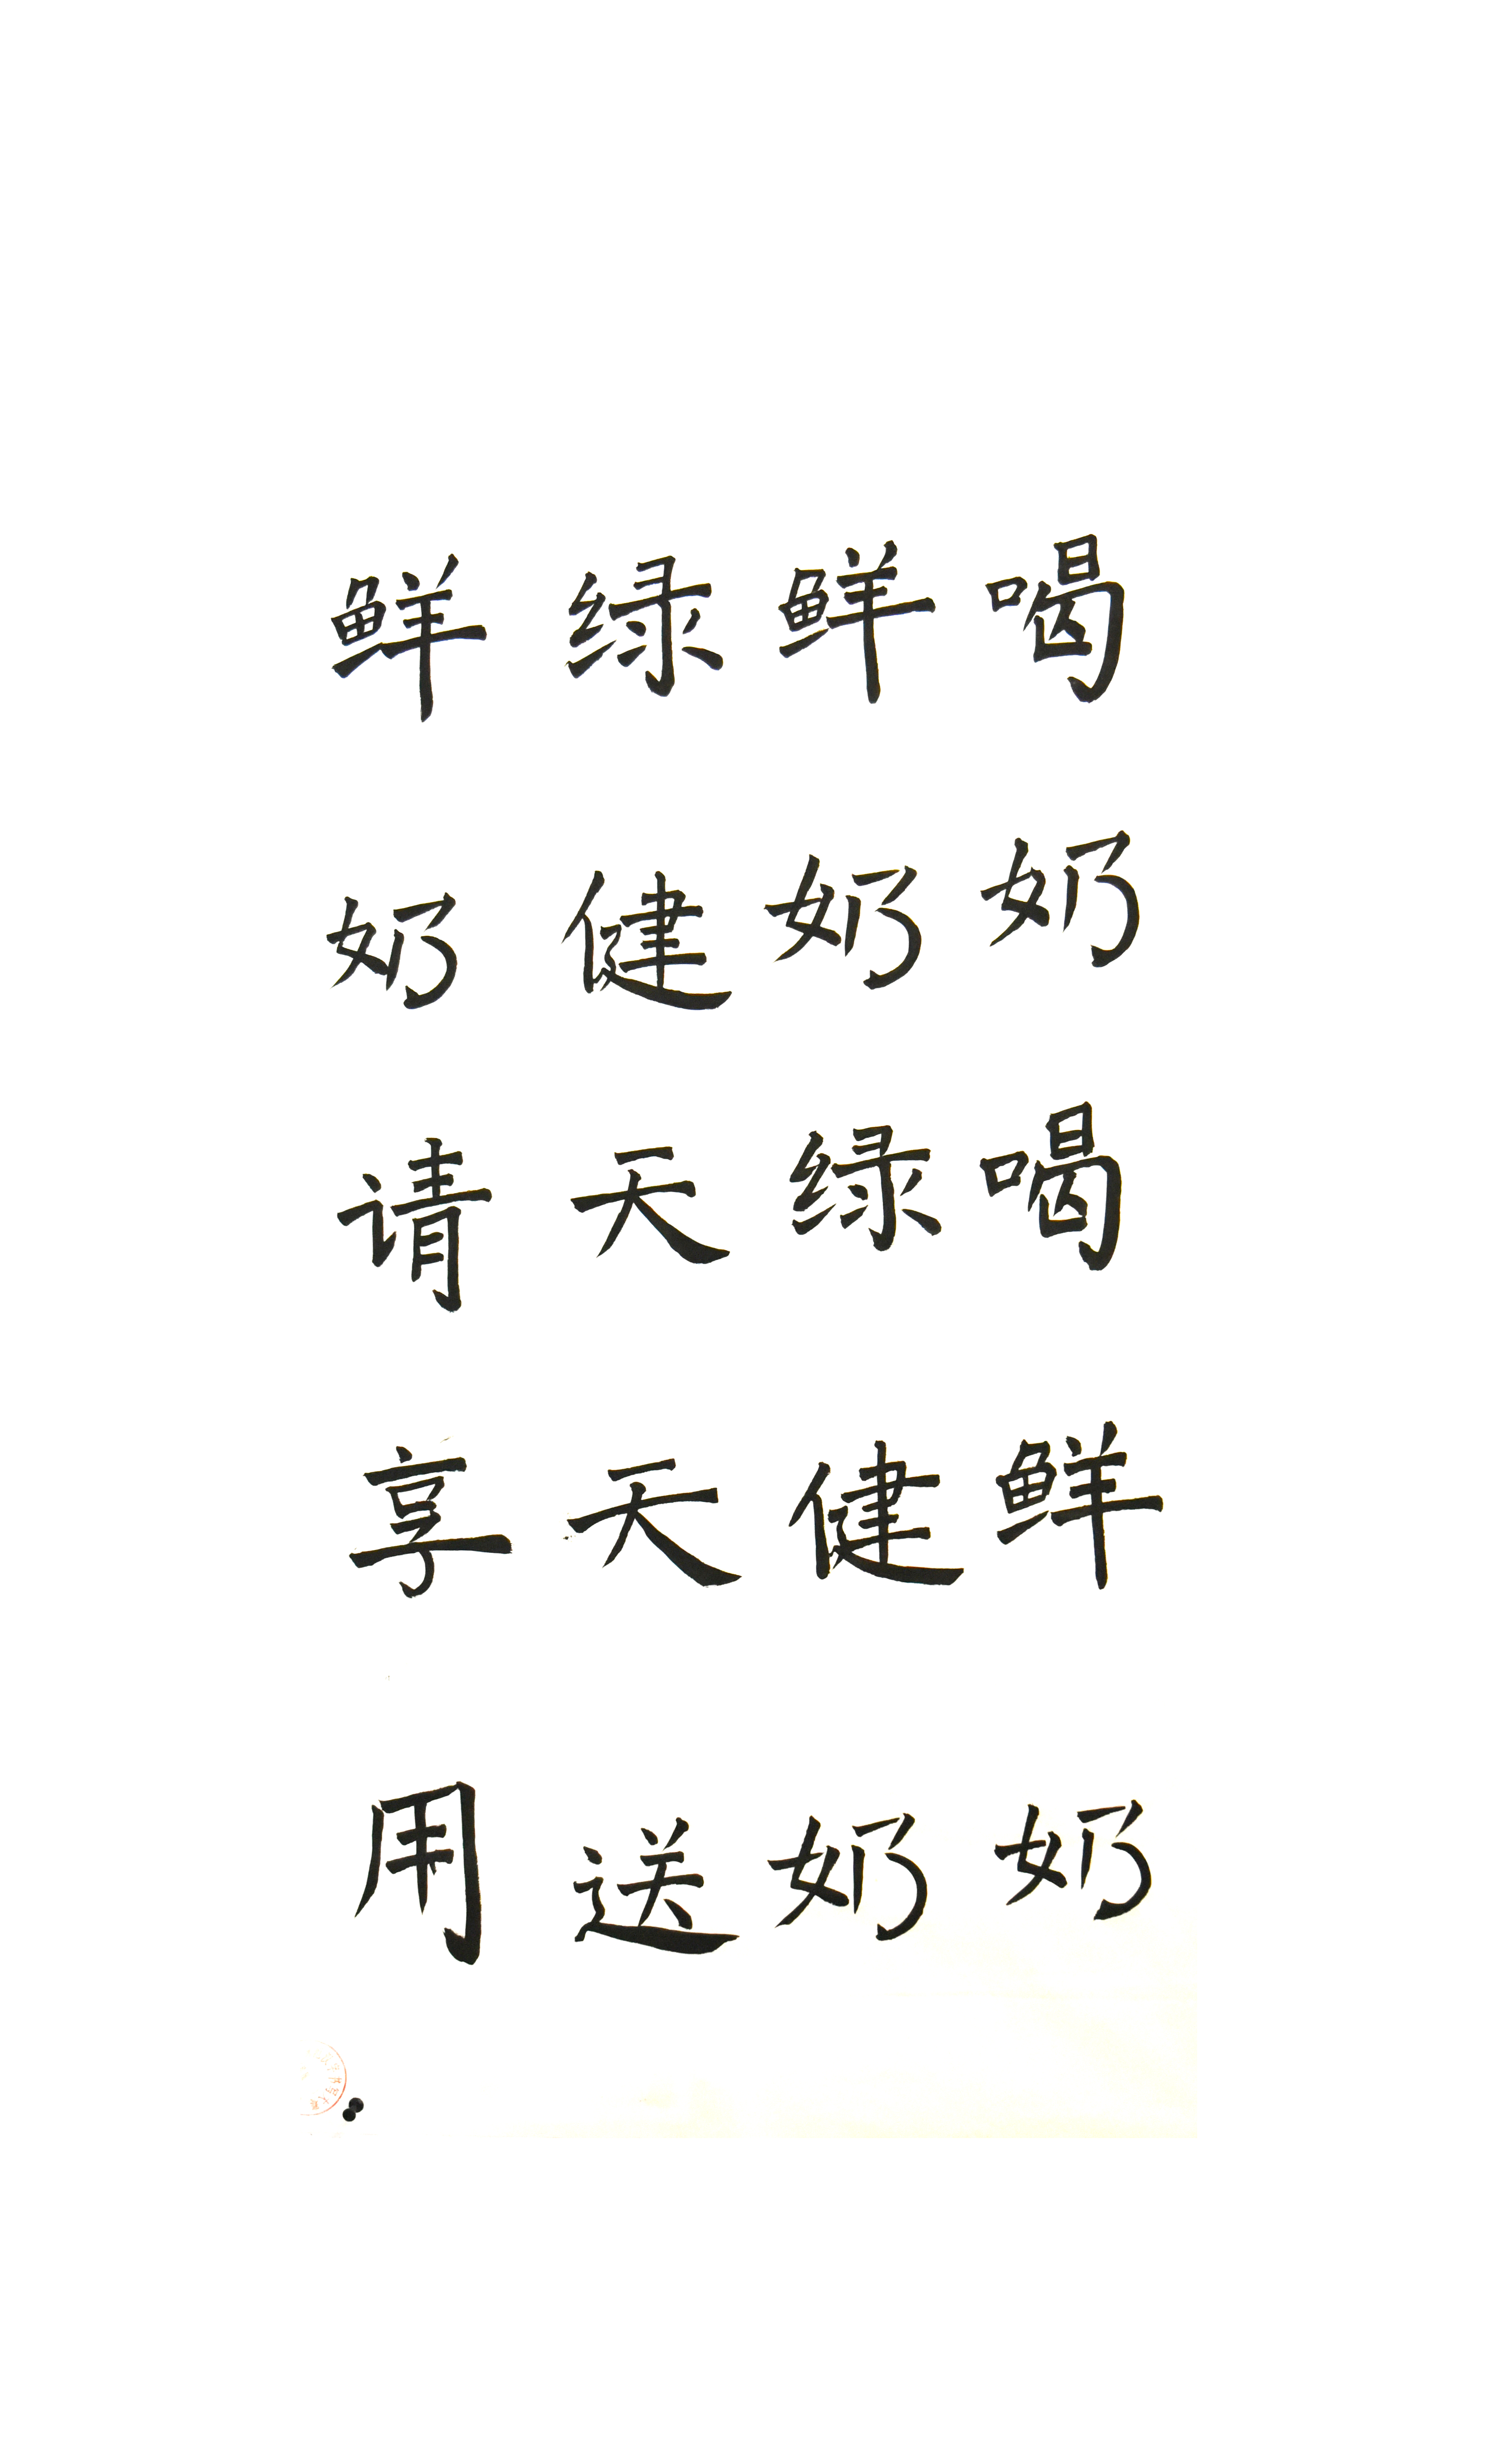 喝奶喝鲜奶
鲜奶绿健奶
绿健天天送
鲜奶请享用